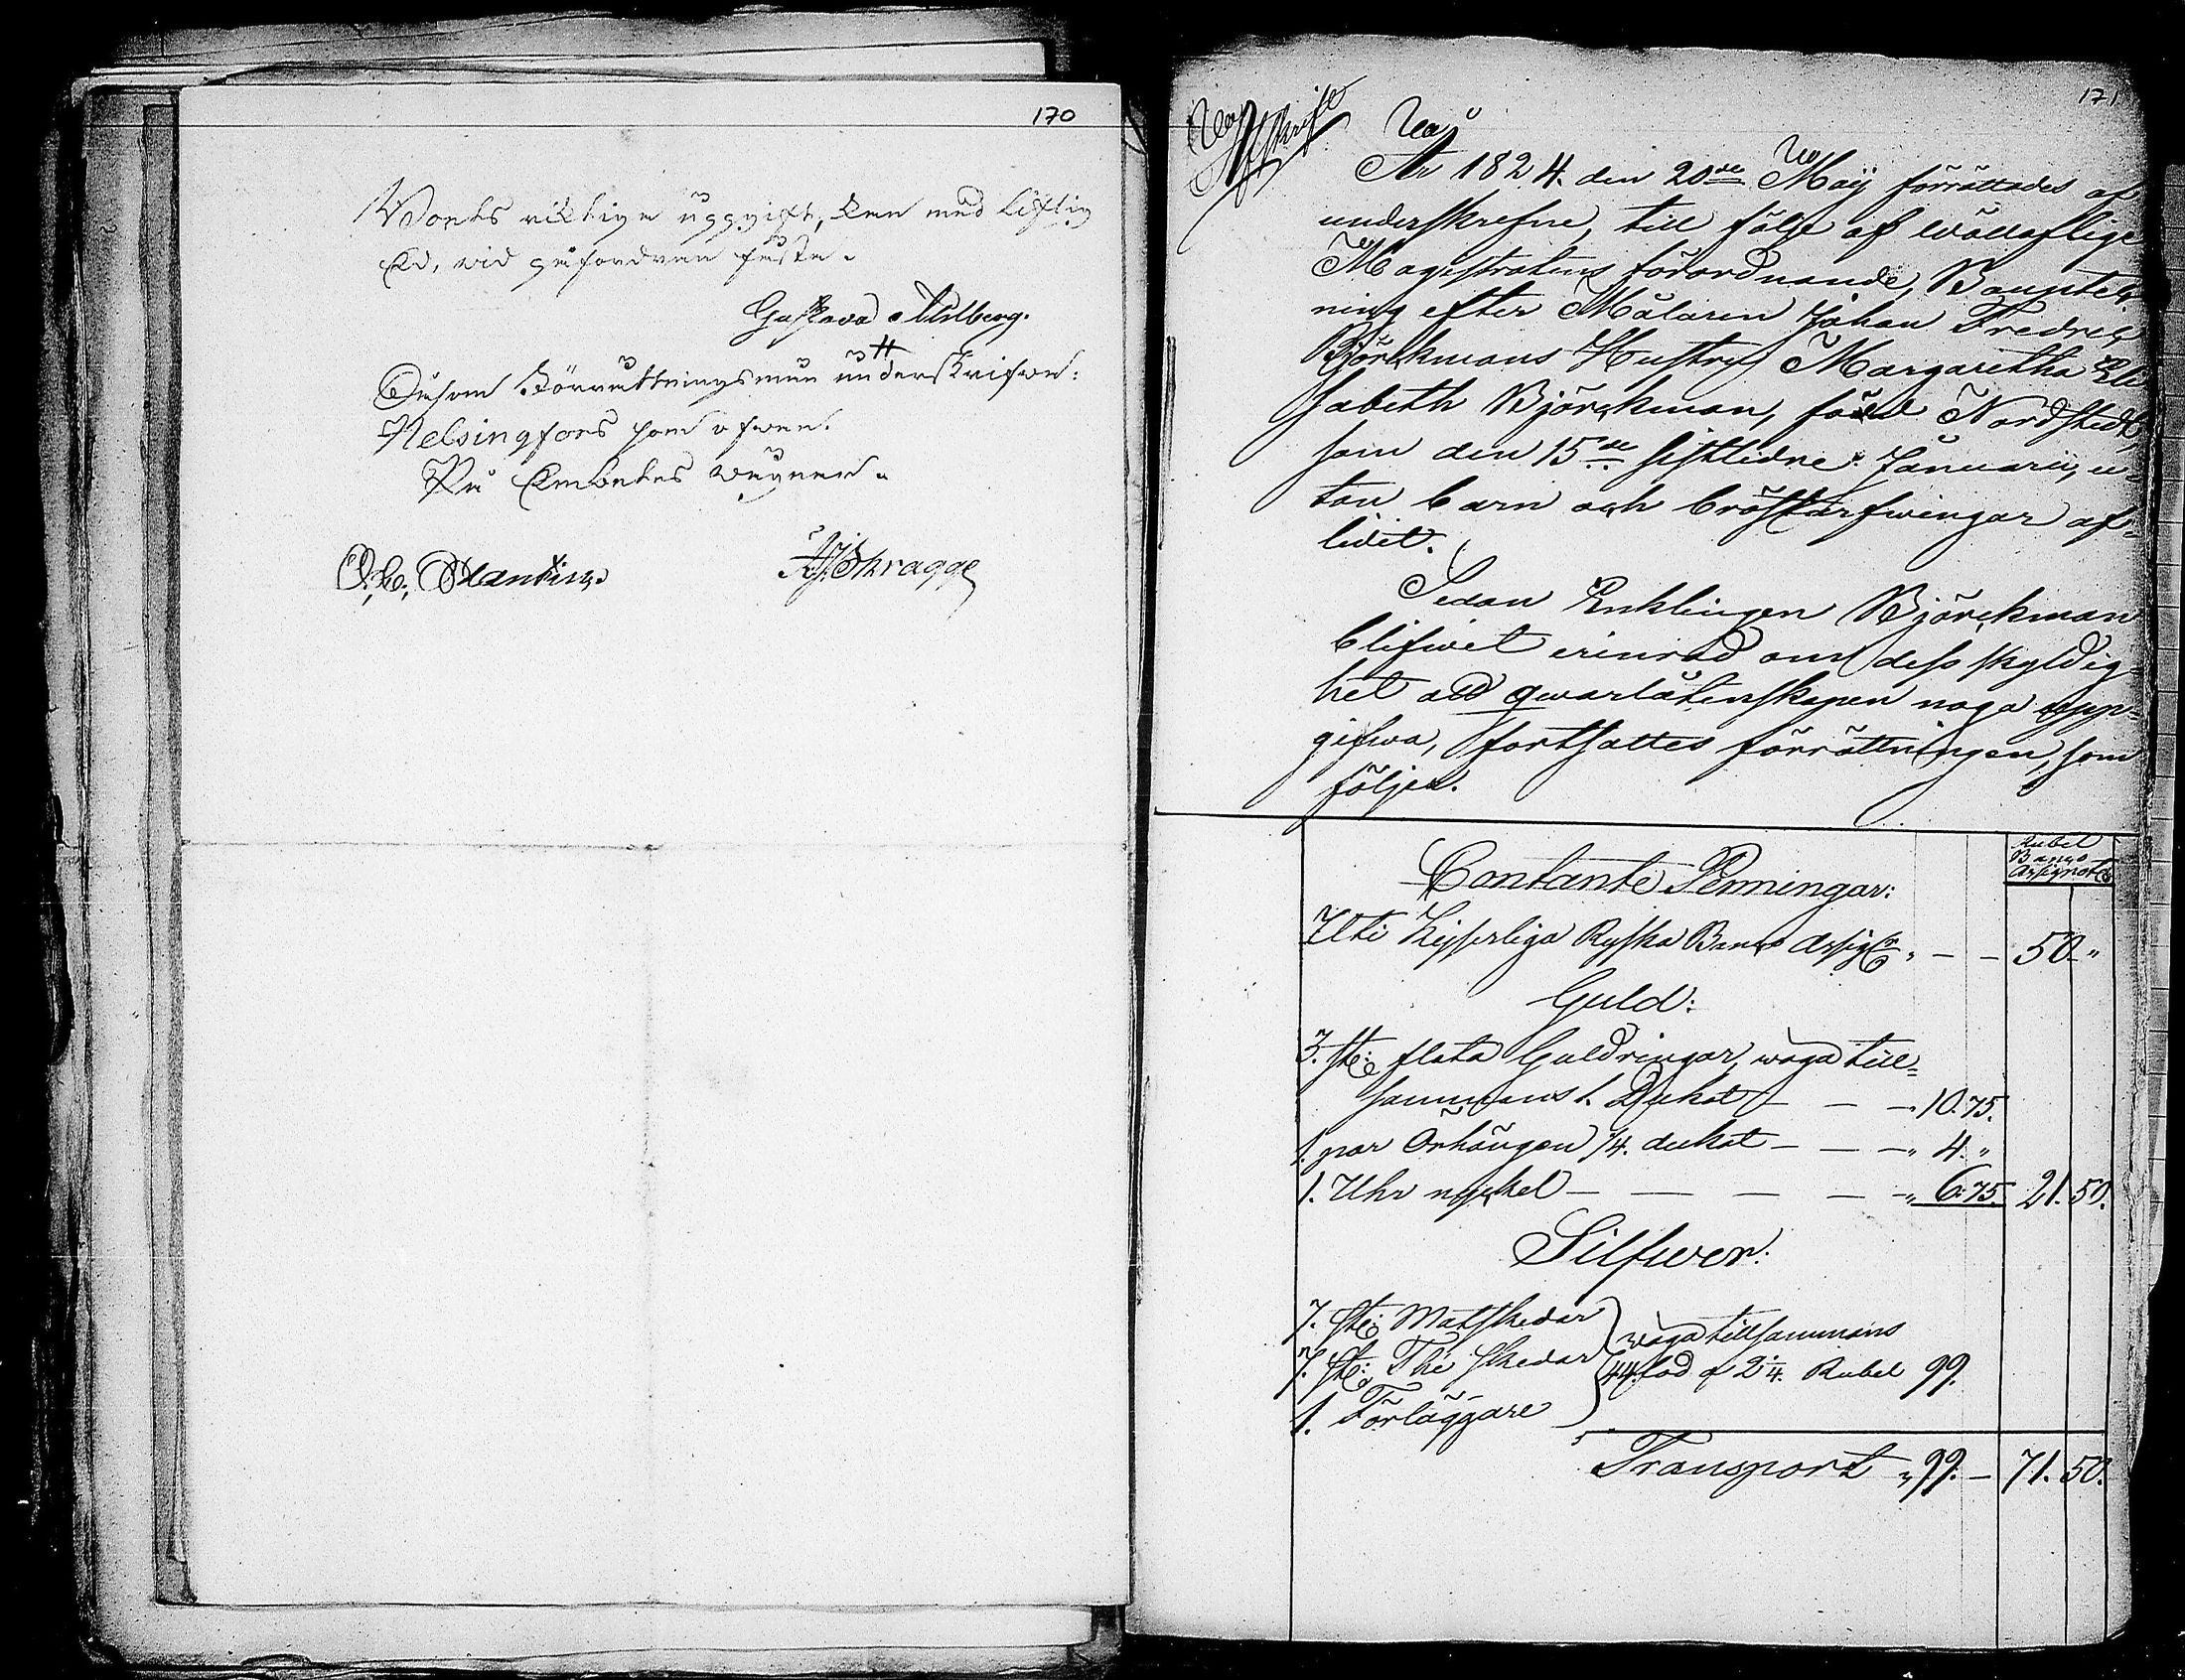 170
Boets riktiga uppgift, kan med liflig
Ed, vid påfordran fästa.
Gustava Ahlberg.
Såsom Förrättningsmän underskrifva:
Helsingfors som ofvan.
På Embetes vägnar.
F. J. Skragge
171
Afskrift
År 1824. den 20de Maij förrättades af
underskrefne, till följe af Wällofliga
Magistratens förordnande, Bouptek-
ning efter Målaren Johan Fredric
Björckmans Hustru Margaretha Eli
sabeth Björckman, född Nordstedt,
som den 15de sistledne Januarii, u-
tan barn och bröstarfwingar af-
lidit.
Sedan Enklingen Björckman
blifwit erinrad om dess skyldig-
het att qwarlåtenskapen noga upp-
gifwa, fortsattes förrättningen, som
följer.
Rubel
Banco
Assignat:
Contante Penningar:
Uti Kejserliga Ryska Banco Assign: " — — 50. "
Guld:
3. st: flata Guldringar, wäga till-
sammans 1. Dukat — — — " 10. 75.
1. par Örhängen 1/4. dukat — — — " 4. "
1. Uhr nyckel — — — — — " 6. 75. 21. 50.
Silfwer:
7. st: Matskedar
7. st: The Skedar
1. Förläggare
wäga tillsammans
44 lod a 2 1/4. Rubel 99.
Transport " 99. — 71. 50.